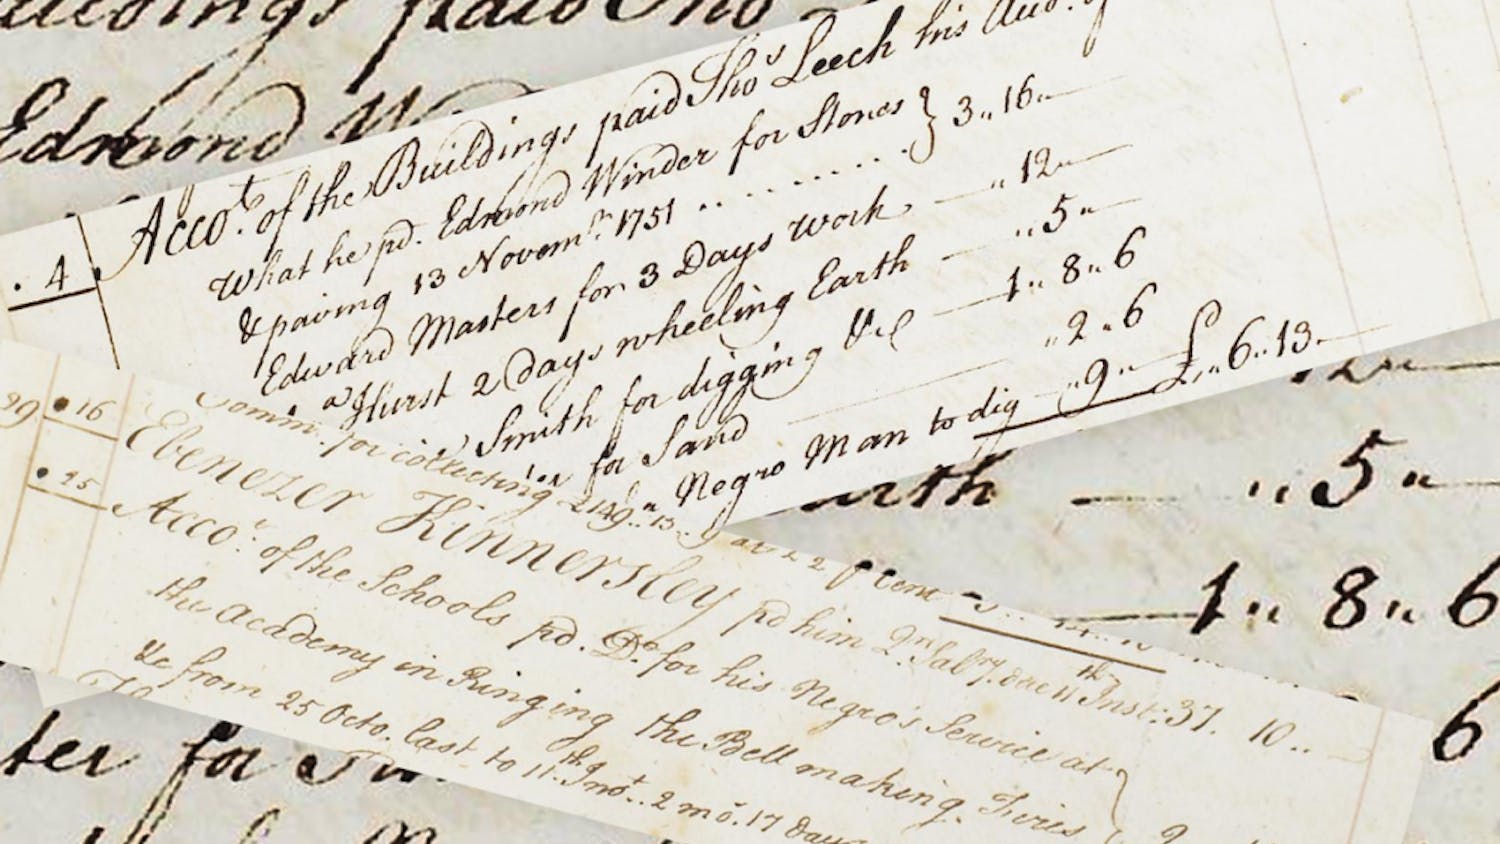 Buildings paid Tho
Edmond
. 4 Acco.t of the Buildings paid Tho.s Leech his Acco.t of
What he pd. Edmond Winder for Stones } 3 " 16 "
& paving 13 Novem.r 1751
Edward Masters for 3 Days work " 12 "
a Hurst 2 Days wheeling Earth " 5 "
Smith for digging &c 1 " 8 " 6
for Sand " 2 " 6
Negro Man to dig " 9 " £ " 6 " 13
Earth " 5 "
1 " 8 " 6
6
29 . 16 Comm. for collecting £149 " 13
. 25 Ebenezer Kinnersley pd him Qr. Salry. due 11th Inst: 37. 10
Acco.t of the Schools pd. Do. for his Negro's Service at
the Academy in Ringing the Bell making Fires
&c from 25 Octo. last to 11th Inst. 2 mo. 17 days
for